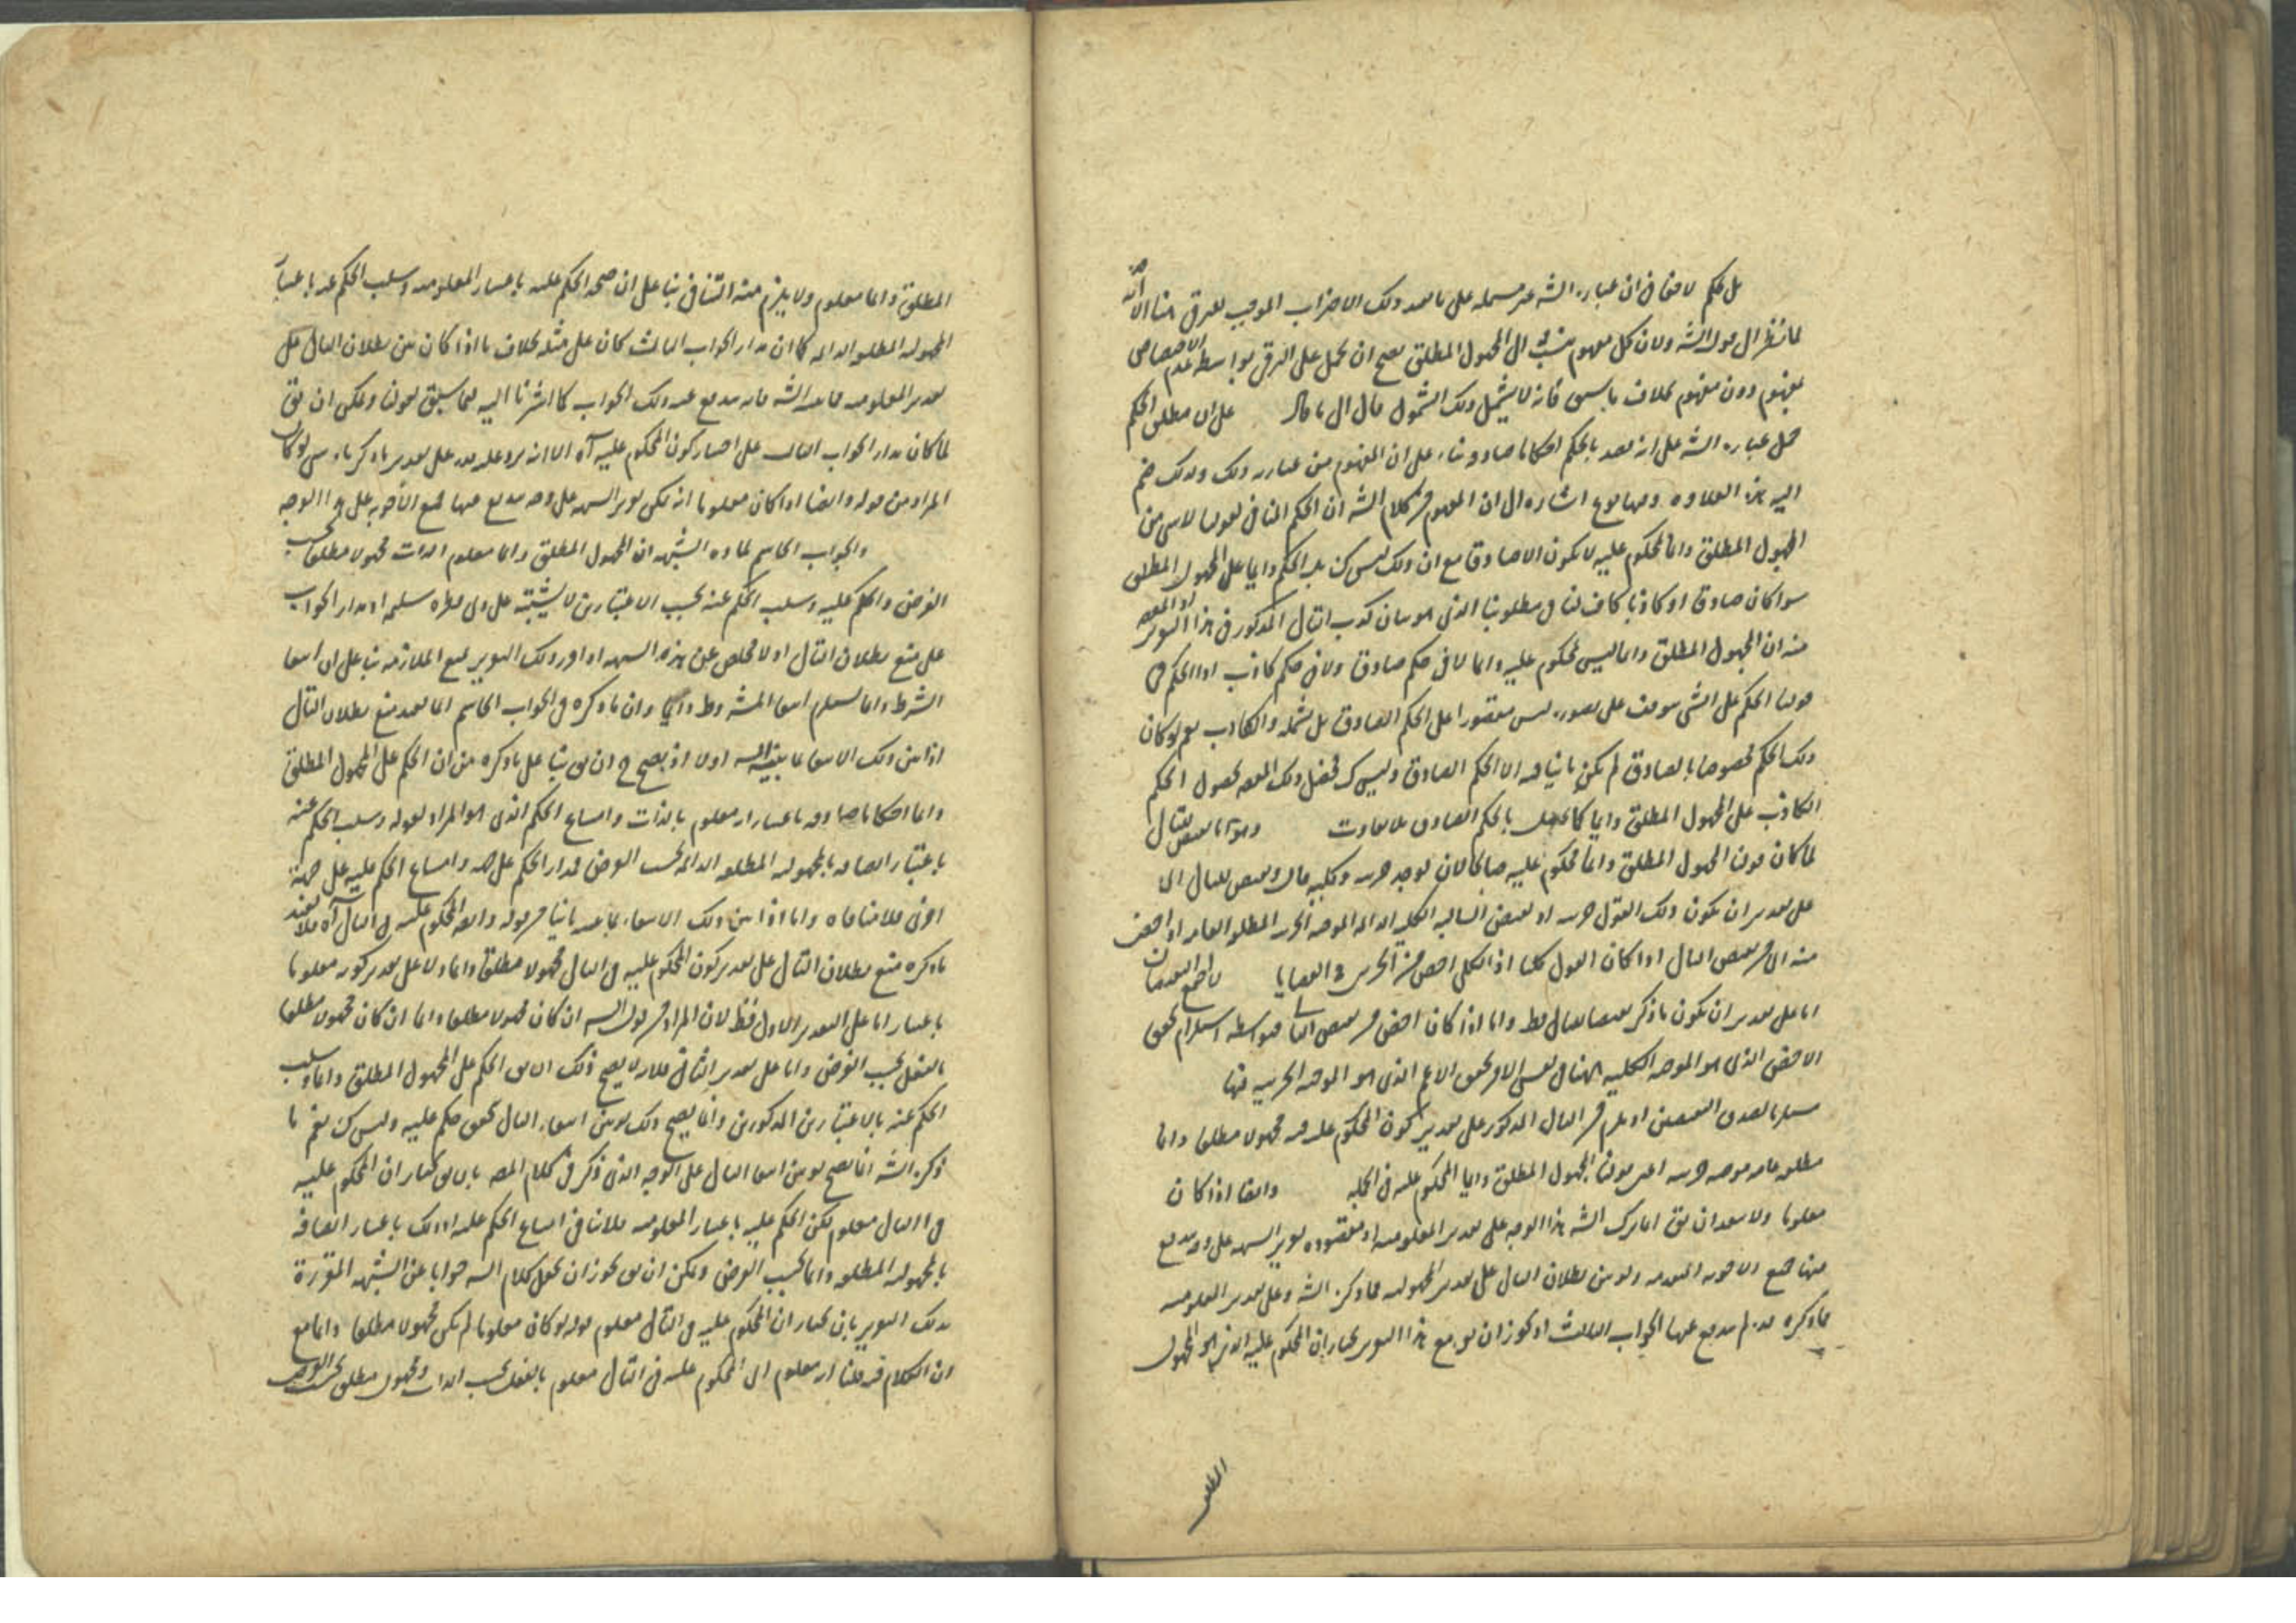 بل حكم لا يخفى ان عبارة الشه غير مسلمة على ما بعد ذلك الاضراب الموجب للفرق هنا الا انه
لما نظر الى قول الشه ولان كل مفهوم ينسب الى المجهول المطلق يصح ان يحمل على الفرق بواسطة عدم الاختصاص
بمفهوم دون مفهوم بخلاف ما سبق فانه لا يشمل ذلك الشمول قال على ان مطلق الحكم
حمل عبارة الشه على انه بعد بالحكم احكاما صادقة بناء على ان المفهوم من عبارته ذلك ولذلك ضم
اليه هذه العلاوة وفيها نوع اشارة الى ان المفهوم من كلام الشه ان الحكم المنافي لقولنا لا شي من
المجهول المطلق دائما محكوم عليه لا يكون الا صادقا مع ان ذلك ليس كذلك الحكم دائما على المجهول المطلق
سواء كان صادقا او كاذبا كاف لنا في مطلوبنا الذي هو بيان كذب التالي المذكور في هذا
منه ان المجهول المطلق دائما ليس محكوم عليه دائما لا في حكم صادق ولا في حكم كاذب اذ الحكم في
قولنا الحكم على الشي موقوف على تصوره ليس مقصورا على الحكم الصادق بل يشمله والكاذب نعم لو كان
ذلك الحكم مخصوصا بالصادق لم يكن ما ينافيه الا الحكم الصادق وليس كذلك بحصول الحكم
الكاذب على المجهول المطلق دائما كما يحصل بالحكم الصادق بلا تفاوت
لما كان قولنا المجهول المطلق دائما محكوم عليه صالحا لان يوجد جزئية وكلية قال
على تقدير ان يكون ذلك القول جزئية اذ نقيض السالبة الكلية الدائمة الموجبة الجزئية المطلقة العامة او اخص
منه اي من نقيض التالي اذا كان القول كليا اذ الكلي اخص من الجزئي في القضايا
اما على تقدير ان يكون ما ذكر نقيضا للتالي فقط واما اذا كان اخص من نقيض التالي فبواسطة استلزام تحقق
الاخص الذي هو الموجبة الكلية هنا في نفس الامر تحقق الاعم الذي هو الموجبة الجزئية فيها
النقيضين او يلزم من التالي المذكور على تقدير كون المحكوم عليه فيه مجهولا مطلقا دائما
مطلقة عامة موجبة جزئية اعني قولنا المجهول المطلق دائما المحكوم عليه في الجملة وايضا اذا كان
معلوما ولا يبعد ان يق انما ترك الشه هذا الوجه على تقدير المعلومية اذ مقصوده تقرير الشبهة على وجه يندفع
عنها جميع الاجوبة المتقدمة ولو بين بطلان التالي على تقدير المجهولية بما ذكره الشه وعلى تقدير المعلومية
بما ذكره لم يندفع عنها الجواب الثالث اذ يجوز ان يق مع هذا التقرير نختار ان المحكوم عليه الذي هو المجهول
المطلق
المطلق دائما معلوم ولا يلزم منه التنافي بناء على ان صحة الحكم عليه باعتبار المعلومية وسلب الحكم عنه باعتبار
المجهولية المطلقة الدائمة كما ان مدار الجواب الثالث كان على مثله بخلاف ما اذا كان بين بطلان التالي على
تقدير المعلومية الشه فانه يندفع عنه ذلك الجواب كما اشرنا اليه فيما سبق ويمكن ان يق
لما كان مدار الجواب الثالث على اختيار كون المحكوم عليه آه الا انه يرد عليه على تقدير ما ذكرناه
المراد من قوله وايضا اذا كان معلوما انه يمكن تقرير الشبهة على وجه يندفع عنها جميع الاجوبة على هذا الوجه
والجواب الحاسم لمادة الشبهة ان المجهول المطلق دائما معلوم الذات مجهول مطلقا بحسب
الفرض والحكم عليه وسلب الحكم عنه بحسب الاعتبارين لا يشتبه على ذي فطرة سليمة اذ مدار الجواب
على منع بطلان التالي اذ لا مخلص عن هذه الشبهة اذا قرر ذلك التقرير بمنع الملازمة بناء على ان انتفاء
الشرط دائما يستلزم انتفاء المشروط دائما وان ما ذكره في الجواب الحاسم انما يفيد منع بطلان التالي
اذا بين ذلك الانتفاء بما بينه الشه اولا اذ يصح ح ان يق بناء على ما ذكره من ان الحكم على المجهول المطلق
دائما احكاما صادقة باعتبار انه معلوم بالذات وامتناع الحكم الذي هو المراد بقوله وسلب الحكم عنه
باعتبار اتصافه بالمجهولية المطلقة الدائمة بحسب الفرض فمدار الحكم على جهة وامتناع الحكم عليه على جهة
اخرى فلا منافاة واما اذا بين ذلك الانتفاء بما بينه ثانيا من قوله وايضا المحكوم عليه في التالي آه فلا يفيد
ما ذكره منع بطلان التالي على تقدير كون المحكوم عليه في التالي مجهولا مطلقا دائما ولا على تقدير كونه معلوما
باعتبار اما على التقدير الاول فظ لان المراد من قول الشه ان كان مجهولا مطلقا دائما ان كان مجهولا مطلقا
بالفعل بحسب الفرض واما على تقدير الثاني فلانه لا يصح ذلك الا بين الحكم على المجهول المطلق دائما وسلب
الحكم عنه بالاعتبارين المذكورين وانما يصح ذلك لو بين انتفاء التالي بتحقق حكم عليه وليس كذلك نعم ما
ذكره الشه انما يصح لو بين انتفاء التالي على الوجه الذي ذكر في كلام المصه بان يق نختار ان المحكوم عليه
في التالي معلوم لكن الحكم عليه باعتبار المعلومية فلا ينافي امتناع الحكم عليه اذ ذلك باعتبار اتصافه
بالمجهولية المطلقة دائما بحسب الفرض ويمكن ان يق يجوز ان يجعل كلام الشه جوابا عن الشبهة المقررة
بذلك التقرير بان نختار ان المحكوم عليه في التالي معلوم قوله لو كان معلوما لم يكن مجهولا مطلقا دائما مع
ان الكلام فيه قلنا انه معلوم اي المحكوم عليه في التالي معلوم بالفعل بحسب الذات ومجهول مطلق بحسب الفرض